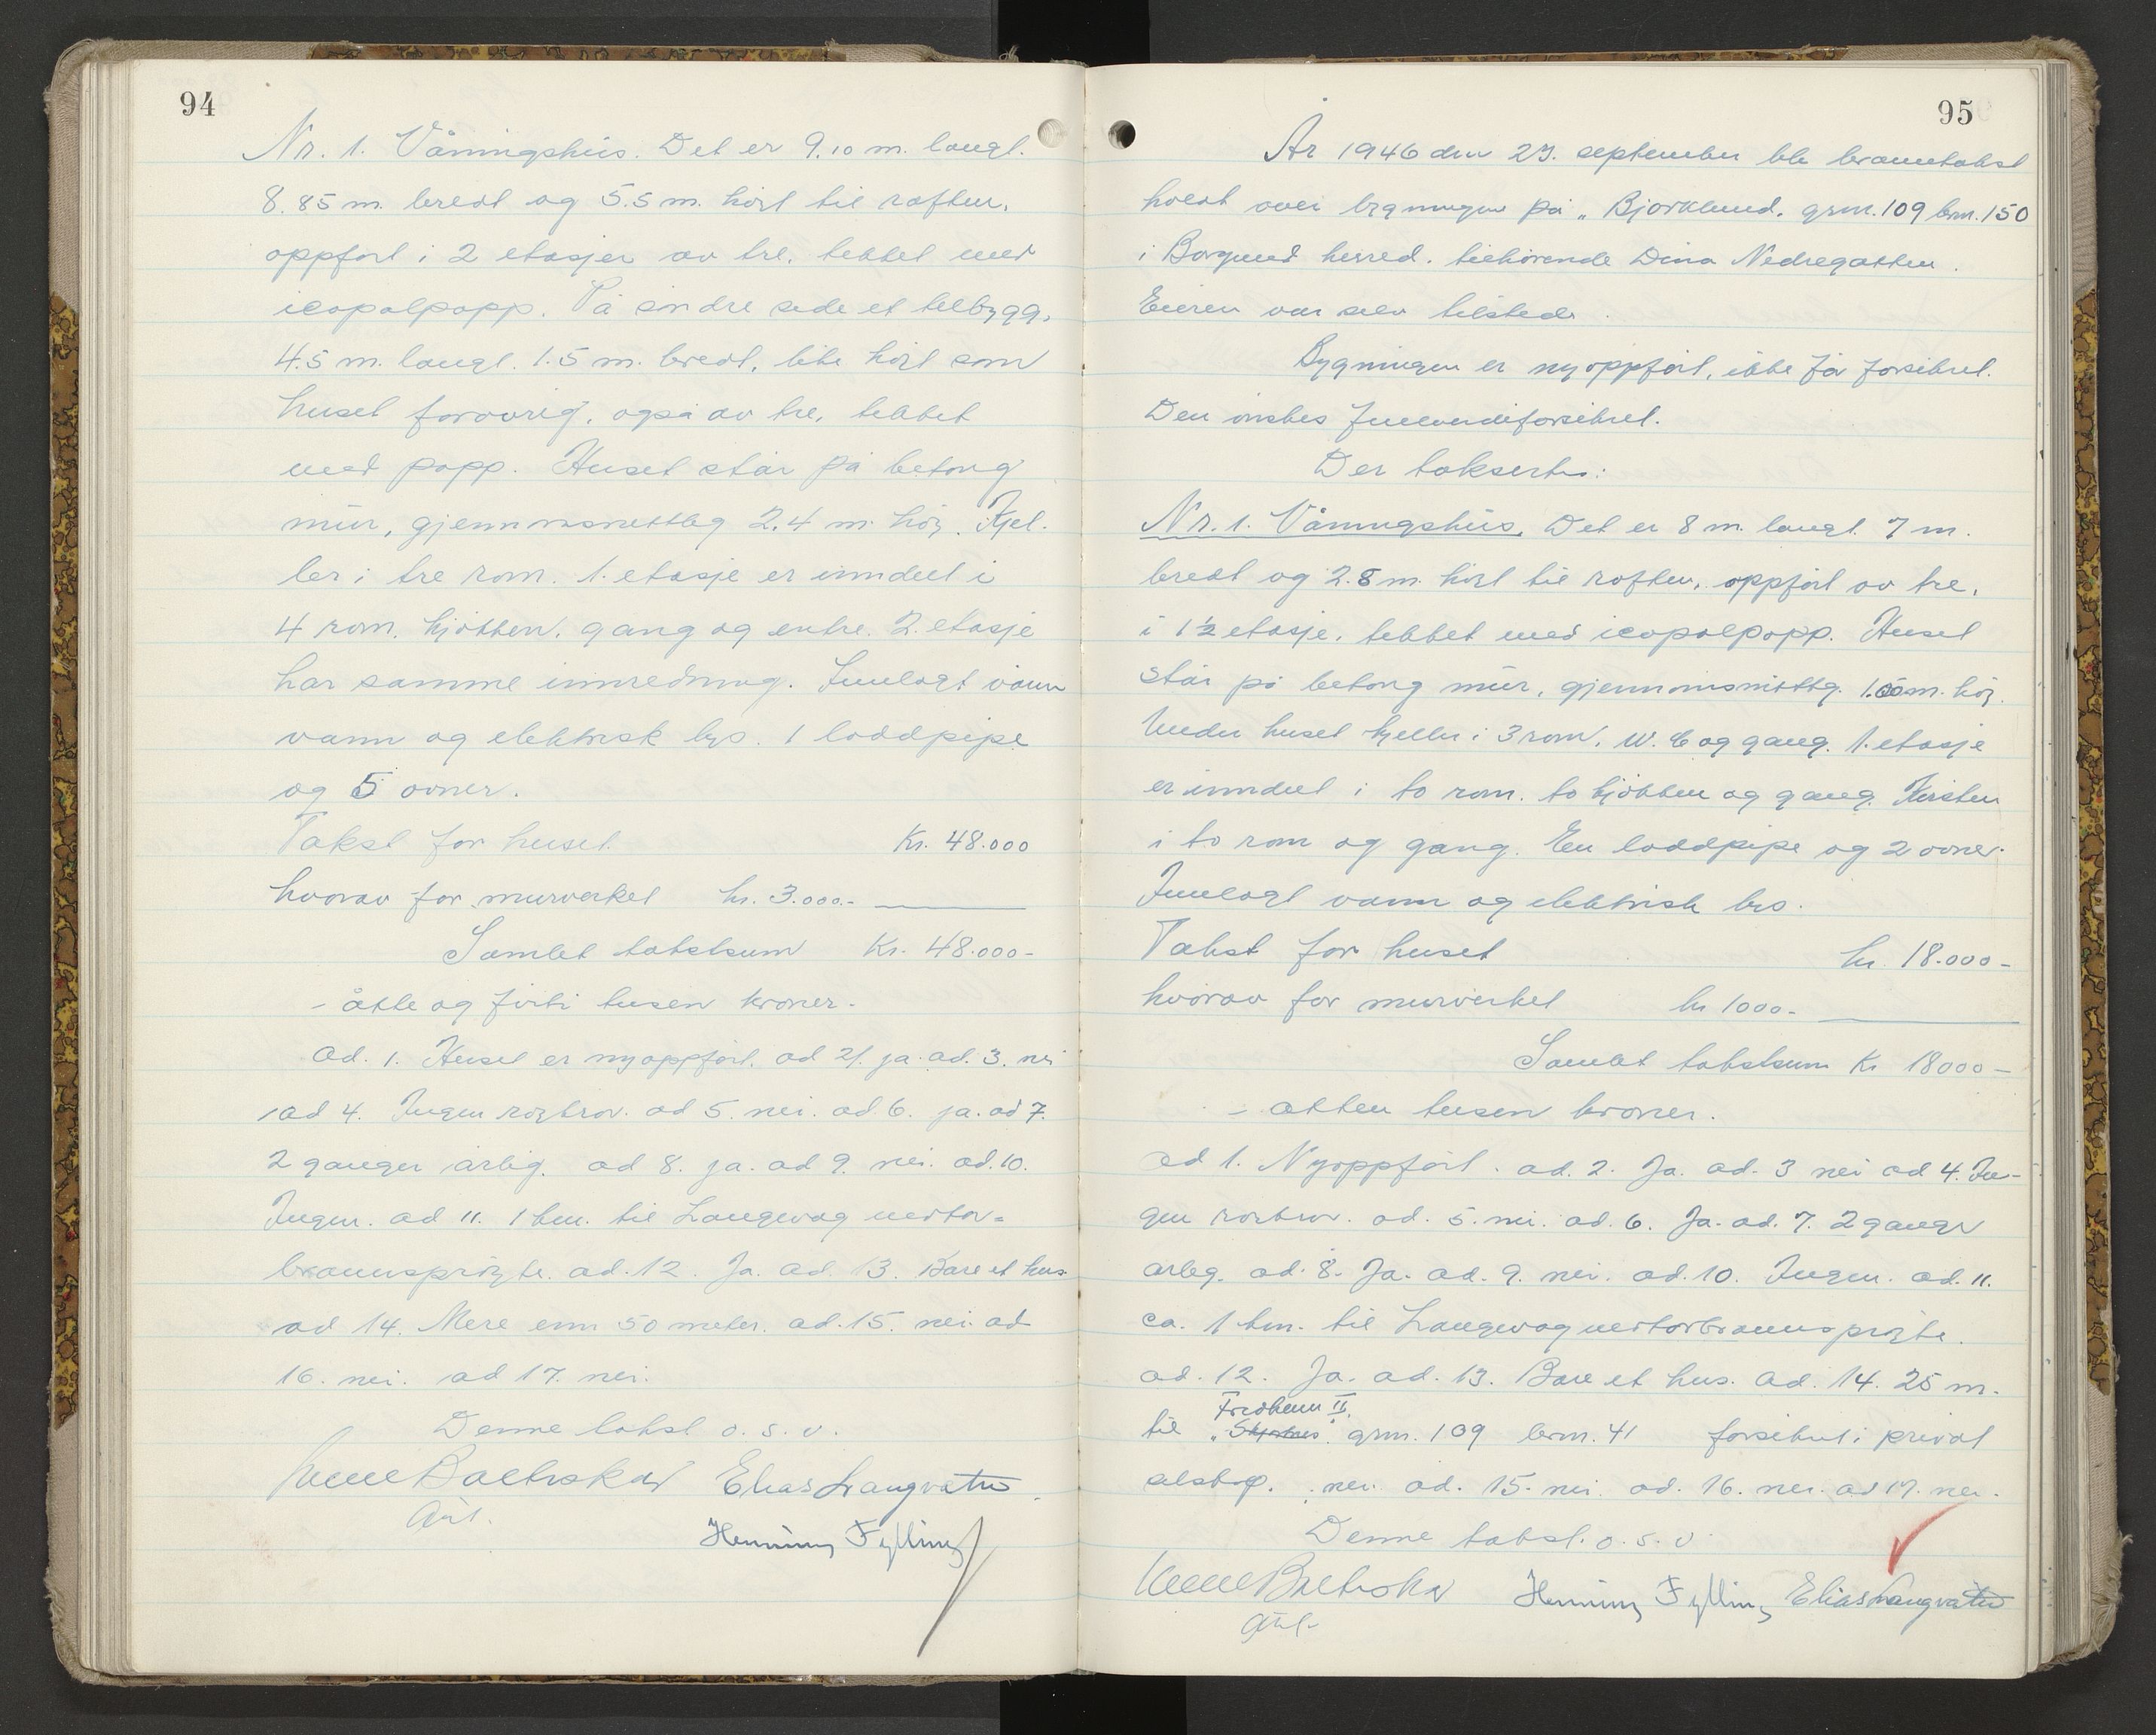 94
Nr. 1. Våningshus. Det er 9.10 m. langt.
8.85 m. bredt og 5.5 m. høit til raften,
oppført i 2 etasjer av tre, tekket med
icopalpapp. På søndre side et tilbygg,
4.5 m. langt. 1.5 m. bredt, like høit som
huset forøvrig, også av tre, tekket
med papp. Huset står på betong
mur, gjennomsnittlig 2.4 m. høy. Kjel-
ler i tre rom. 1. etasje er inndeelt i
4 rom, kjøkken, gang og entre. 2. etasje
har samme innredning. Innlagt vann
vann og elektrisk lys. 1 loddpipe
og 5 ovner.
Takst for huset Kr. 48.000
hvorav for murverket kr. 3.000.-
Samlet takstsum Kr. 48.000-
- åtte og førti tusen kroner-
ad. 1. Huset er nyoppført. ad 2. ja. ad. 3. nei
ad 4. Ingen ad 5. nei. ad. 6. ja. ad 7.
2 ganger årlig. ad 8. ja. ad 9. nei. ad. 10.
Ingen. ad 11. 1 km. til Langevåg motor=
brannsprøyte. ad. 12. Ja. ad. 13. Bare et hus.
ad 14. Mere enn 50 meter. ad. 15. nei. ad
16. nei. ad 17. nei.
Denne takst o. s. v.
Elias Langvatn
Henning Fylling
95
År 1946 den 27. september ble branntakst
holdt over bygningen på „Bjørklund. grm. 109 brm. 150
i Borgund herred. tilhørende Dina Nedregotten.
Eieren var selv tilstede.
Bygningen er nyoppført, ikke før forsikret.
Den ønskes fullverdiforsikret.
Der taksertes:
Nr. 1. Våningshus. Det er 8 m. langt. 7 m.
bredt og 2.8 m. høit til raften, oppført av tre,
i 1½ etasje, tekket med icopalpapp. Huset
står på betong mur, gjennomsnittlig. m. høy.
Under huset kjeller i 3 rom, W. C og gang. 1. etasje
er inndeelt i to rom. to kjøkken og gang. Kvisten
i to rom og gang. En loddpipe og 2 ovner.
Innlagt vann og elektrisk lys.
Takst for huset kr. 18.000-
hvorav for murverket kr 1000-
Samlet takstsum Kr 18000-
- atten tusen kroner.
ad 1. Nyoppført. ad. 2. Ja. ad. 3 nei ad 4. In-
gen ad. 5. nei. ad. 6. Ja. ad. 7. 2 ganger
årlig. ad. 8. Ja. ad. 9. nei. ad. 10. Ingen. ad. 11.
ca. 1 km. til Langevåg motorbrannsprøyte.
ad. 12. Ja. ad. 13. Bare et hus. ad. 14. 25 m.
Fredheim II.
til „ grm. 109 brm. 41 forsikret i privat
selskap. nei. ad. 15. nei. ad. 16. nei. ad 17. nei.
Denne takst. o. s. v.
Henning Fylling Elias Langvatn